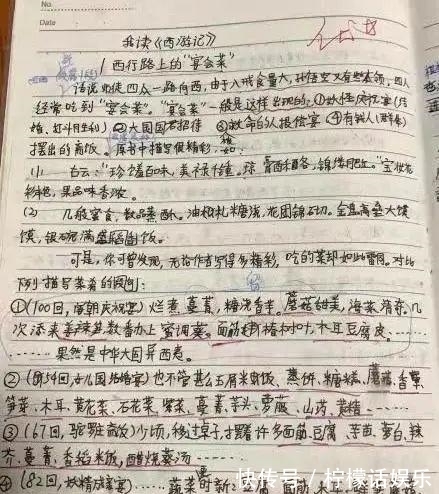 No.
Date
我读《西游记》
1 西行路上的"宴会菜"
话说师徒四众一路向西,由于八戒食量大,孙悟空又有些本领,四人
经常吃到"宴会菜"。"宴会菜"一般是这样出现的:①妖怪庆忙宴(结
婚、打斗胜利) ②大国国君招待 ③救命的人报偿宴 ④有钱人(群众)
摆出的斋饭。原书中描写很精彩,如:
(1) 百云:"珍馐百味,美禄千钟。琼膏酥酪,锦缕肥红。"宝妆花
彩艳,果品味香浓。
(2) 几般蜜食,数品蒸酥。油札糖浇,花团锦砌。金盘高垒大馒
馍,银碗满盛稻饭。
可是,你可曾发现,无论作者写得多精彩,吃的菜却如此雷同。对比
下列描写菜肴的段
①(100回,唐朝庆祝宴)烂煮蔓菁,糖浇香芋。蘑菇甜美,海菜清奇。几
次添来姜辣笋,数番办上蜜调葵。面筋椿树叶,木耳豆腐皮。……
……果然是中华大国异西夷。
②(第54回,女儿国结婚宴)也不管甚么玉屑米饭、蒸饼、糖糕、蘑菇、香蕈、
笋芽、木耳、黄花菜、石花菜、紫菜、蔓菁、芋头、萝菔、山药、黄精……
③(67回,驼罗斋饭)少顷,移过桌子,摆着许多面筋、豆腐、芋苗、萝白、辣
芥、蔓菁、香稻米饭,醋烧葵汤……
④(82回,妖精成亲宴)……蔬菜时新:豆腐、面筋、木耳
快传号 / 柠檬话娱乐